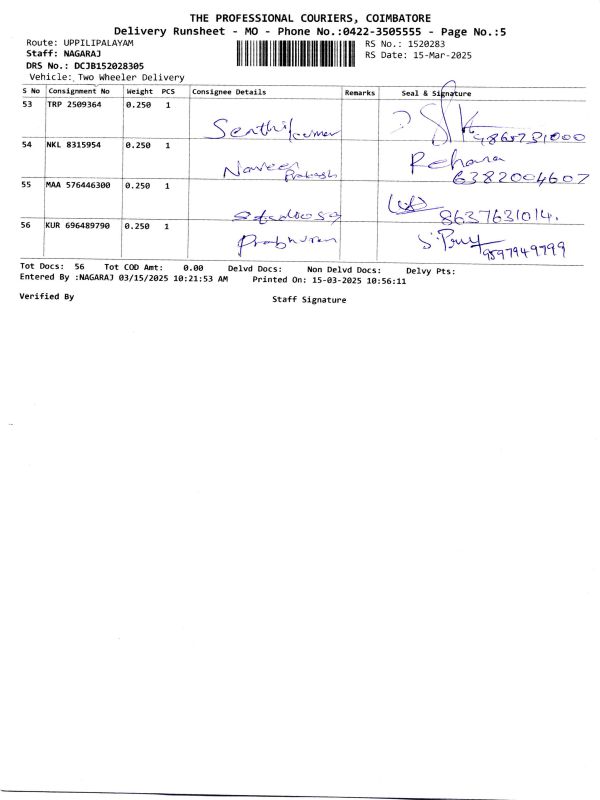 THE PROFESSIONAL COURIERS, COIMBATORE
Delivery Runsheet - MO - Phone No.:0422-3505555 - Page No.:5
Route: UPPILIPALAYAM
RS No.: 1520283
Staff: NAGARAJ
RS Date: 15-Mar-2025
DRS No.: DCJB152028305
Vehicle: Two Wheeler Delivery
S No Consignment No Weight PCS Consignee Details Remarks Seal & Signature
53 TRP 2509364 0.250 1
Senthilkumar 9865731000
54 NKL 8315954 0.250 1
Naveen Prakash Rehana 6382004607
55 MAA 576446300 0.250 1
8637631014.
56 KUR 696489790 0.250 1
9597949799
Tot Docs: 56 Tot COD Amt: 0.00 Delvd Docs: Non Delvd Docs: Delvy Pts:
Entered By :NAGARAJ 03/15/2025 10:21:53 AM Printed On: 15-03-2025 10:56:11
Verified By Staff Signature